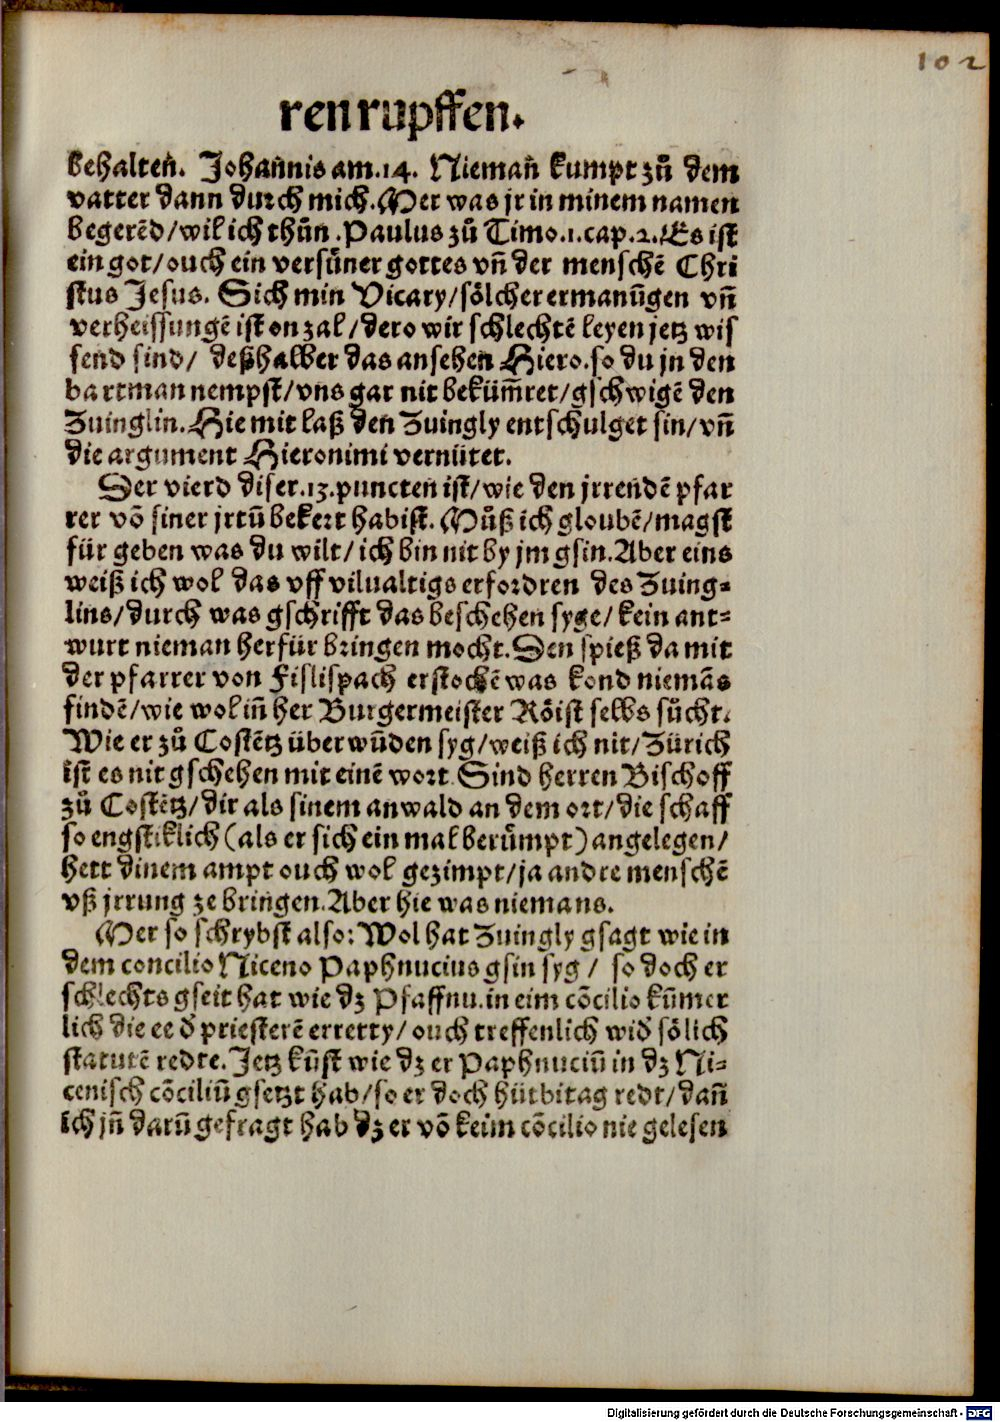 102
ren rupffen.
behalteñ. Johañnis am.14. Niemañ kumpt zů dem
vatter dann durch mich. Mer was jr in minem namen
begerēd/wil ich thůn. Paulus zů Timo.1.cap.2. Es ist
ein got/ouch ein versůner gottes vñ der menschē Chri
stus Jesus. Sich min Vicary/sölcher ermanūgen vñ
verheissungē ist on zal/dero wir schlechtē leyen jetz wis
send sind/ deßhalber das ansehen Hiero. so du jn den
hartman nempst/vns gar nit bekům̄ret/gschwigē den
Zuinglin. Hie mit laß den Zuingly entschulget sin/vñ
die argument Hieronimi vernütet.
Der vierd diser.13.puncten ist/wie den jrrendē pfar
rer vō siner jrtū bekert habist. Můß ich gloubē/magst
für geben was du wilt/ich bin nit by jm gsin. Aber eins
weiß ich wol das vff vilualtigs erfordren des Zuing-
lins/durch was gschrifft das beschehen syge/kein ant-
wurt nieman herfür bringen mocht. Den spieß da mit
der pfarrer von Fislispach erstochē was kond niemās
findē/wie wol iñ her Burgermeister Röist selbs sůcht.
Wie er zů Costētz überwūden syg/weiß ich nit/Zürich
ist es nit gschehen mit einē wort. Sind herren Bischoff
zů Costētz/dir als sinem anwald an dem ort/die schaff
so engstiklich (als er sich ein mal berůmpt) angelegen/
hett dinem ampt ouch wol gezimpt/ja andre menschē
vß jrrung ze bringen. Aber hie was niemans.
Mer so schrybst also: Wol hat Zuingly gsagt wie in
dem concilio Niceno Paphnucius gsin syg/ so doch er
schlechts gseit hat wie dz Pfaffnu. in eim cōcilio kůmer
lich die ee d̕ priesterē erretty/ouch treffenlich wid̕ sölich
statutē redte. Jetz kůst wie dz er Paphnuciū in dz Ni-
cenisch cōciliū gsetzt hab/so er doch hütbitag redt/dañ
ich jñ darū gefragt hab dz er vō keim cōcilio nie gelesen
Digitalisierung gefördert durch die Deutsche Forschungsgemeinschaft - DFG